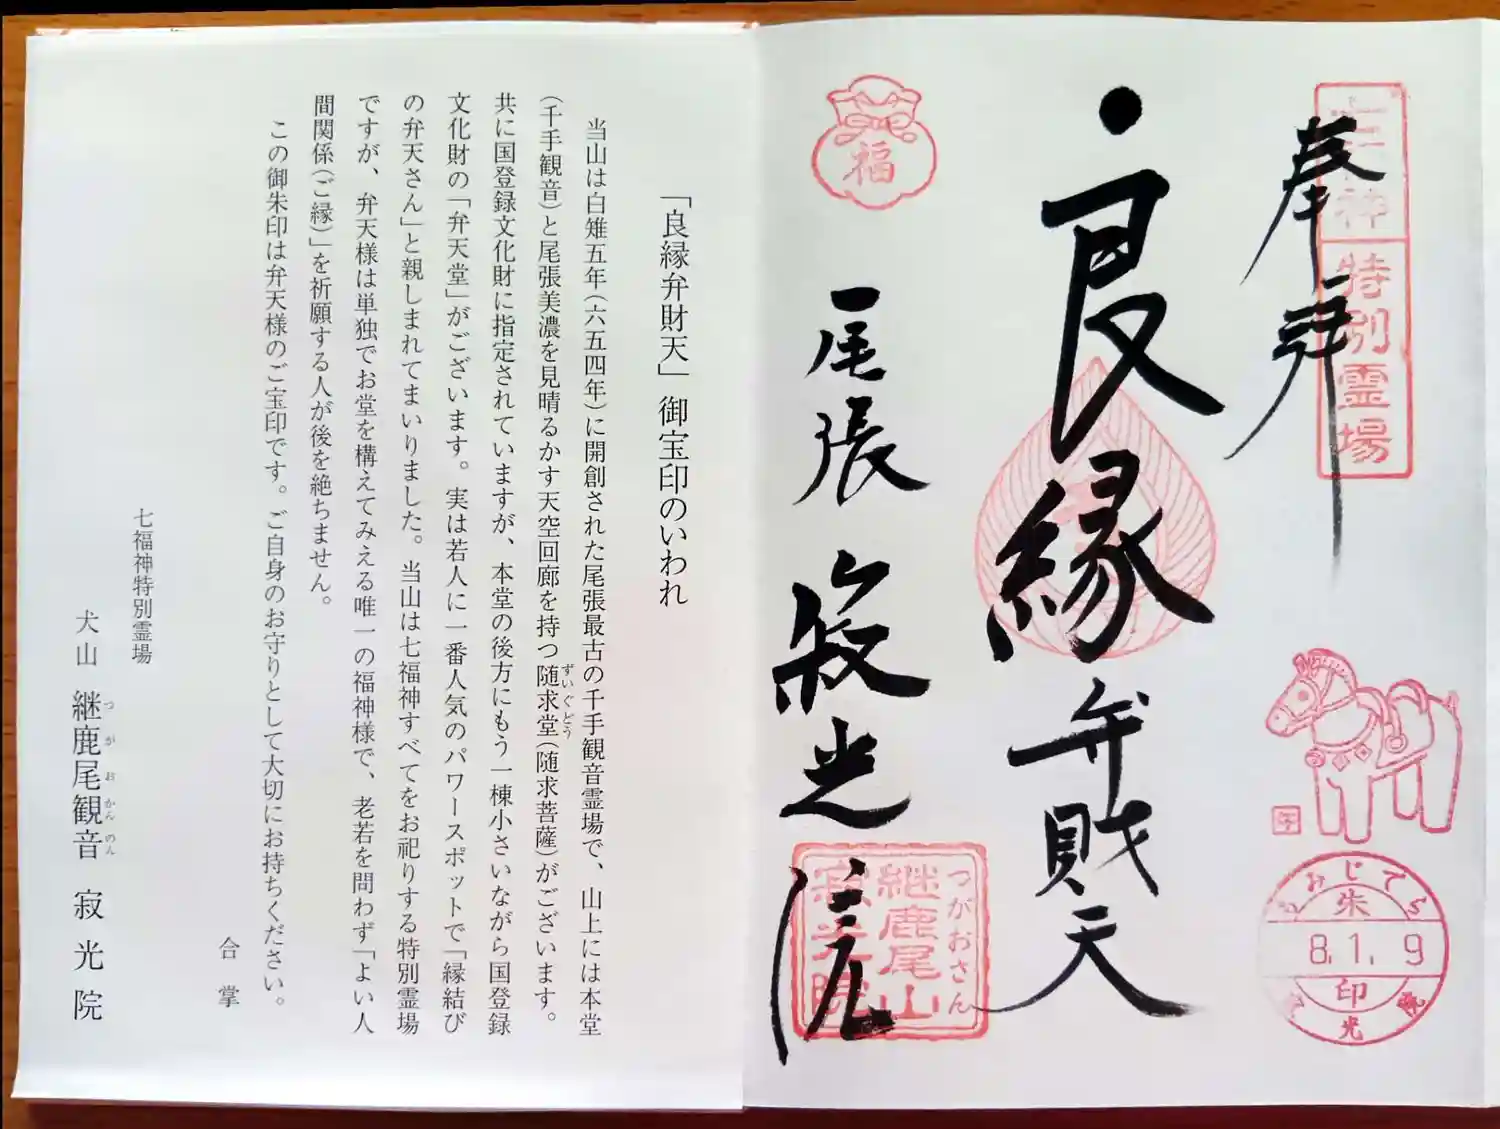 奉拝
七福神
特別霊場
・良縁弁財天
福
尾張 寂光院
つがおさん
継鹿尾山
寂光院
午
もみじでら
朱
8.1.9
印
寂光院
「良縁弁財天」御宝印のいわれ
当山は白雉五年(六五四年)に開創された尾張最古の千手観音霊場で、山上には本堂
(千手観音)と尾張美濃を見晴るかす天空回廊を持つ随求堂(随求菩薩)がございます。
ずいぐどう
共に国登録文化財に指定されていますが、本堂の後方にもう一棟小さいながら国登録
文化財の「弁天堂」がございます。実は若人に一番人気のパワースポットで「縁結び
の弁天さん」と親しまれてまいりました。当山は七福神すべてをお祀りする特別霊場
ですが、弁天様は単独でお堂を構えてみえる唯一の福神様で、老若を問わず「よい人
間関係(ご縁)」を祈願する人が後を絶ちません。
この御朱印は弁天様のご宝印です。ご自身のお守りとして大切にお持ちください。
合掌
七福神特別霊場
犬山 継鹿尾観音 寂光院
つがおかんのん